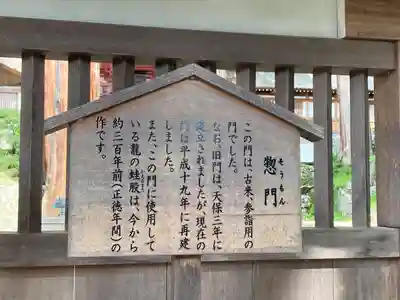 惣門
そうもん
この門は、古来、参詣用の
門でした。
なお、旧門は、天保三年に
設立されましたが、現在の
門は平成十九年に再建
しました。
また、この門に使用して
いる龍の蛙股は、今から
約三百年前(正徳年間)の
作です。